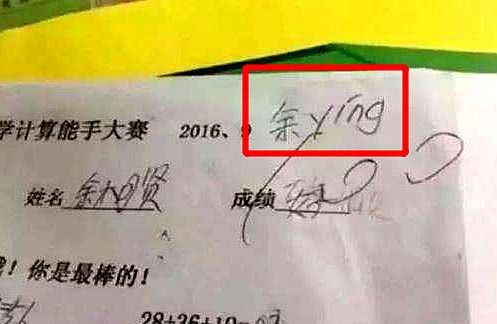 学计算能手大赛 2016、9 余yíng
姓名 余 贤 成绩
！你是最棒的！
28+36+19=